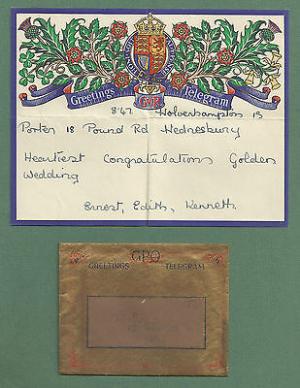 Greetings Telegram
GR
8.47 Wolverhampton 13
Porter 18 Pound Rd Wednesbury
Heartiest Congratulations Golden
Wedding
Ernest, Edith, Kenneth.
GPO
GREETINGS TELEGRAM